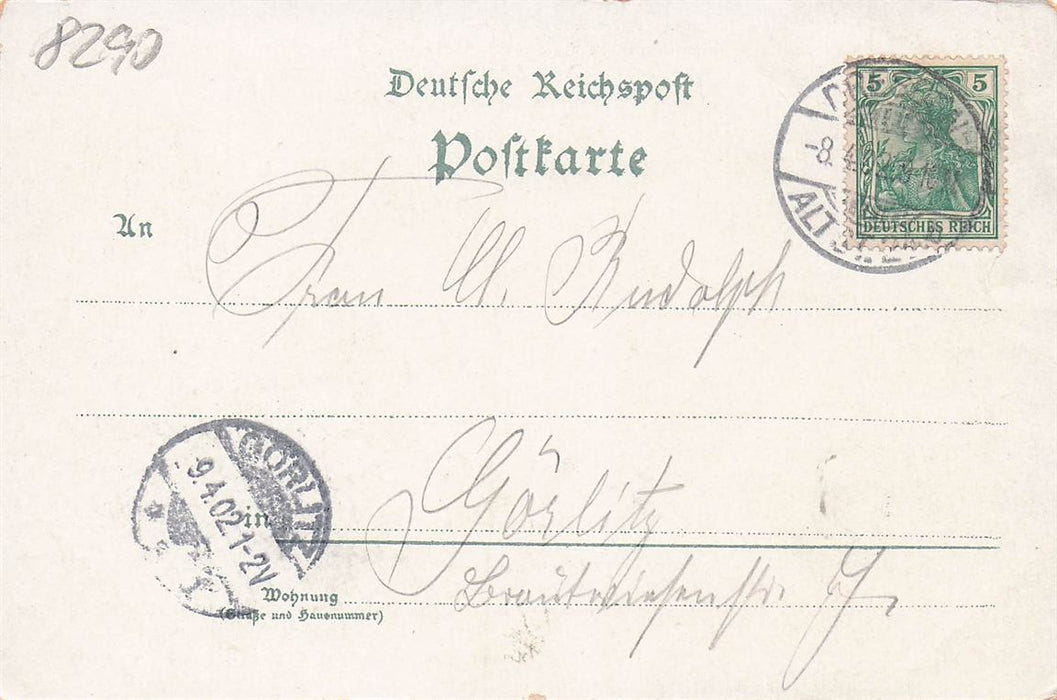 8290
Deutsche Reichspost
Postkarte
5 5
DEUTSCHES REICH
-8.4.
ALTST.
An
Frau W. Rudolph
GÖRLITZ
-9.4.02.1-2V
*
1
in
Görlitz
Wohnung
(Straße und Hausnummer)
Brautwiesenstr.